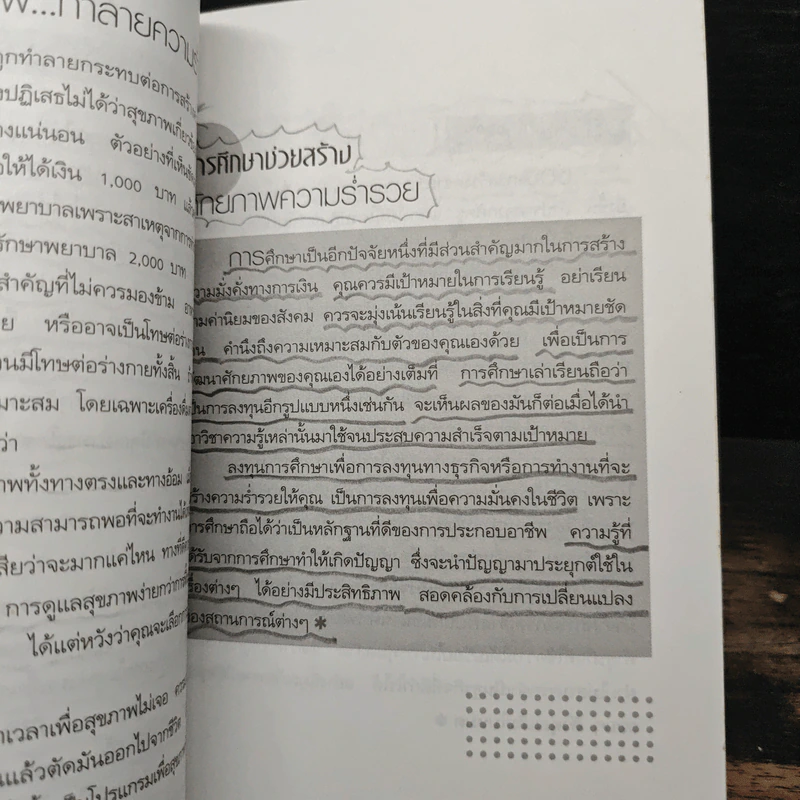 พ...ทำลายความ
ถูกทำลายกระทบต่อการสร้าง
ปฏิเสธไม่ได้ว่าสุขภาพเกี่ยว
างแน่นอน ตัวอย่างที่เห็นชัด
ให้ได้เงิน 1,000 บาท แล้ว
พยาบาลเพราะสาเหตุจากการ
รักษาพยาบาล 2,000 บาท
สำคัญที่ไม่ควรมองข้าม
หรืออาจเป็นโทษต่อร่าง
นมีโทษต่อร่างกายทั้งสิ้น
มาะสม โดยเฉพาะเครื่องดื่ม
ว่า
าพทั้งทางตรงและทางอ้อม
วามสามารถพอที่จะทำงานได้
สียว่าจะมากแค่ไหน ทางที่ดี
การดูแลสุขภาพง่ายกว่าการ
ได้แต่หวังว่าคุณจะเลือก
าเวลาเพื่อสุขภาพไม่เจอ ควร
นแล้วตัดมันออกไปจากชีวิต
เป็นโปรแกรมเพื่อสุข
การศึกษาช่วยสร้าง
ศักยภาพความร่ำรวย
การศึกษาเป็นอีกปัจจัยหนึ่งที่มีส่วนสำคัญมากในการสร้าง
ความมั่งคั่งทางการเงิน คุณควรมีเป้าหมายในการเรียนรู้ อย่าเรียน
ตามค่านิยมของสังคม ควรจะมุ่งเน้นเรียนรู้ในสิ่งที่คุณมีเป้าหมายชัด
เจน คำนึงถึงความเหมาะสมกับตัวของคุณเองด้วย เพื่อเป็นการ
พัฒนาศักยภาพของคุณเองได้อย่างเต็มที่ การศึกษาเล่าเรียนถือว่า
เป็นการลงทุนอีกรูปแบบหนึ่งเช่นกัน จะเห็นผลของมันก็ต่อเมื่อได้นำ
เอาวิชาความรู้เหล่านั้นมาใช้จนประสบความสำเร็จตามเป้าหมาย
ลงทุนการศึกษาเพื่อการลงทุนทางธุรกิจหรือการทำงานที่จะ
สร้างความร่ำรวยให้คุณ เป็นการลงทุนเพื่อความมั่นคงในชีวิต เพราะ
การศึกษาถือได้ว่าเป็นหลักฐานที่ดีของการประกอบอาชีพ ความรู้ที่
ได้รับจากการศึกษาทำให้เกิดปัญญา ซึ่งจะนำปัญญามาประยุกต์ใช้ใน
เรื่องต่างๆ ได้อย่างมีประสิทธิภาพ สอดคล้องกับการเปลี่ยนแปลง
ของสถานการณ์ต่างๆ *